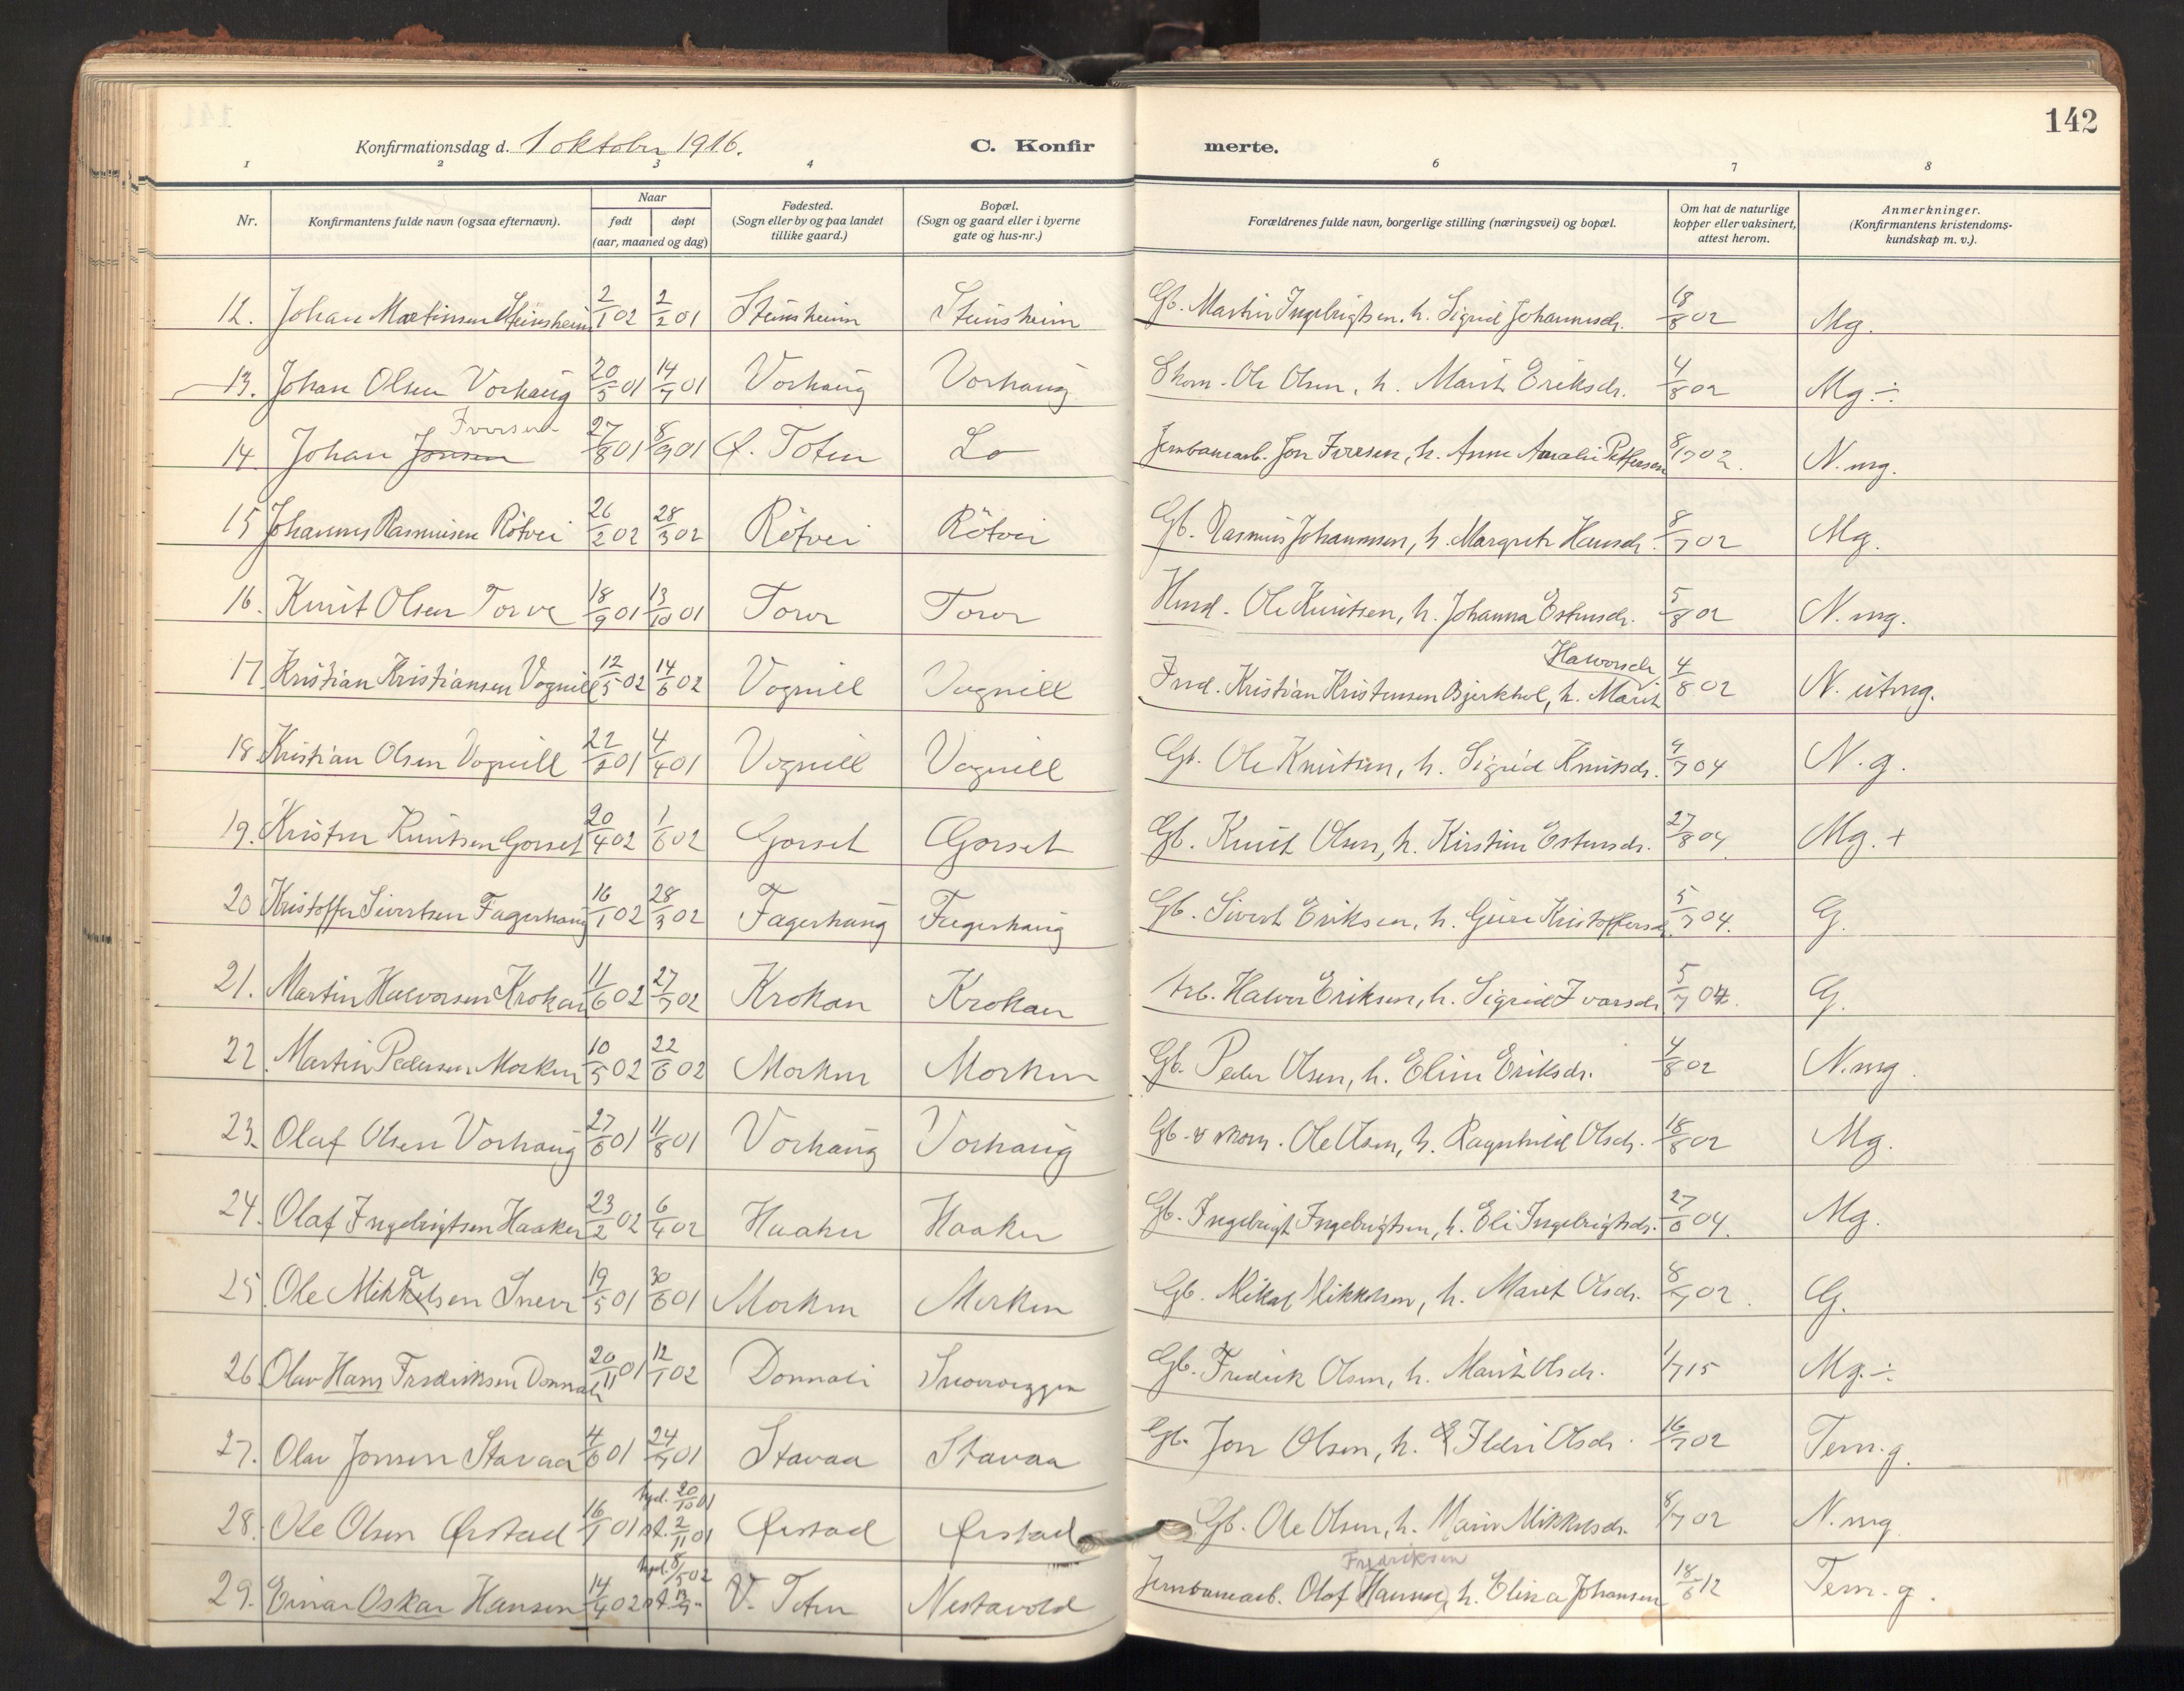 142
Konfirmationsdag d. 1 oktober 1916. C. Konfirmerte.
1 2 3 4 6 7 8
Nr. Konfirmantens fulde navn (ogsaa efternavn). Naar født døpt (aar, maaned og dag) Fødested. (Sogn eller by og paa landet tillike gaard.) Bopæl. (Sogn og gaard eller i byerne gate og hus-nr.) Forældrenes fulde navn, borgerlige stilling (næringsvei) og bopæl. Om hat de naturlige kopper eller vaksinert, attest herom. Anmerkninger. (Konfirmantens kristendomskundskap m. v.).
12. Johan Martinsen Steinsheim 2/1 02 2/2 01 Steinsheim Steinsheim Gb. Martin Ingebrigtsen, h. Sigrid Johannesdr. 18/8 02 Mg.
13. Johan Olsen Vorhaug 20/5 01 14/7 01 Vorhaug Vorhaug Skom. Ole Olsen, h. Marit Eriksdr. 4/8 02 Mg.÷
14. Johan Jonsen Iversen 27/8 01 8/9 01 Ø. Toten Lo Jernbanearb. Jon Iversen, h. Anne Amalie Pettersen 8/7 02. N. mg.
15 Johannes Rasmusen Rötvei 26/2 02 28/3 02 Rötvei Rötvei Gb. Rasmus Johannesen, h. Margrete Hansdr. 8/7 02 Mg.
16. Knut Olsen Torve 18/9 01 13/10 01 Torve Torve Husd. Ole Knutsen, h. Johanna Estensdr. 5/8 02 N. mg.
17 Kristian Kristiansen Vognill 12/5 02 14/6 02 Vognill Vognill Ind. Kristian Kristensen Bjerkhol, h. Marit Halvorsdr. 4/8 02 N. utmg.
18 Kristian Olsen Vognill 22/2 01 4/4 01 Vognill Vognill Gb. Ole Knutsen, h. Sigrid Knutsdr. 4/7 04 N. g.
19. Kristen Knutsen Gorset 20/4 02 1/6 02 Gorset Gorset Gb. Knut Olsen, h. Kirstine Estensdr. 27/8 04 Mg. +
20 Kristoffer Sivertsen Fagerhaug 16/1 02 28/3 02 Fagerhaug Fagerhaug Gb. Sivert Eriksen, h. Guri Kristoffersd. 5/7 04. G.
21. Martin Halvorsen Krokan 11/6 02 27/7 02 Krokan Krokan Arb. Halvor Eriksen, h. Sigrid Ivarsdr 5/7 04. G.
22. Martin Pedersen Morken 10/5 02 22/6 02 Morken Morken Gb. Peder Olsen, h. Eline Eriksdr. 4/8 02 N. mg.
23. Olaf Olsen Vorhaug 27/6 01 11/8 01 Vorhaug Vorhaug Gb. & skom. Ole Olsen, h. Ragnhild Olsdr. 18/8 02 Mg.
24. Olaf Ingebrigtsen Haaker 23/2 02 6/4 02 Haaker Haaker Gb. Ingebrigt Ingebrigtsen, h. Eli Ingebrigtsdr. 27/6 04. Mg.
25. Ole Mikkalsen Sneve 19/5 01 30/6 01 Morken Morken Gb. Mikal Mikkelsen, h. Marit Olsdr. 8/7 02. G.
26 Olav Hans Fredriksen Donnali 20/11 01 12/1 02 Donnali Gb. Fredrik Olsen, h. Marit Olsdr. 1/7 15 Mg.÷
27. Olav Jonsen Stavaa 4/6 01 24/7 01 Stavaa Stavaa Gb. Jon Olsen, h. Ildri Olsdr. 16/7 02 Tem. g.
28. Ole Olsen Ørstad 16/1 01 hjd. 20/10 01 st. 2/11 01 Ørstad Ørstad Gb. Ole Olsen, h. Marie Mikkelsdr. 8/7 02 N. mg
29. Einar Oskar Hansen 14/4 02 hjd. 8/5 02 V. Toten Nestavold Jernbanearb. Olaf Hansen Fredriksen, h. Elina Johansen 18/6 12 Tem. g.